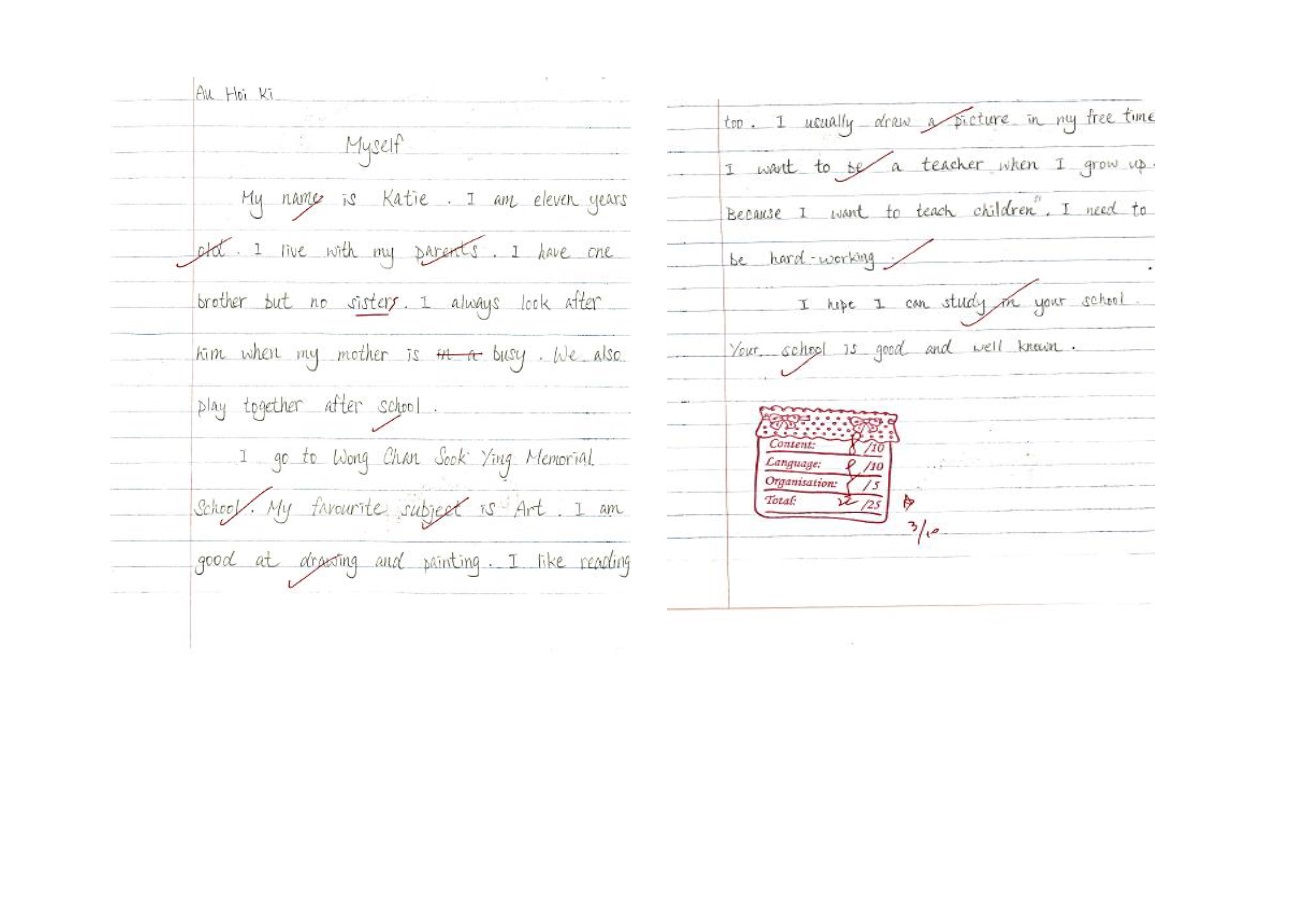 Au Hoi Ki
Myself
My name is Katie. I am eleven years
old. I live with my parents. I have one
brother but no sisters. I always look after
him when my mother is in a busy. We also
play together after school.
I go to Wong Chan Sook Ying Memorial
School. My favourite subject is Art. I am
good at drawing and painting. I like reading
too. I usually draw a picture in my free time
I want to be a teacher when I grow up.
Because I want to teach children". I need to
be hard-working.
I hope I can study in your school.
Your school is good and well known.
Content: 8 /10
Language: 8 /10
Organisation: /5
Total: 22 /25
3/10